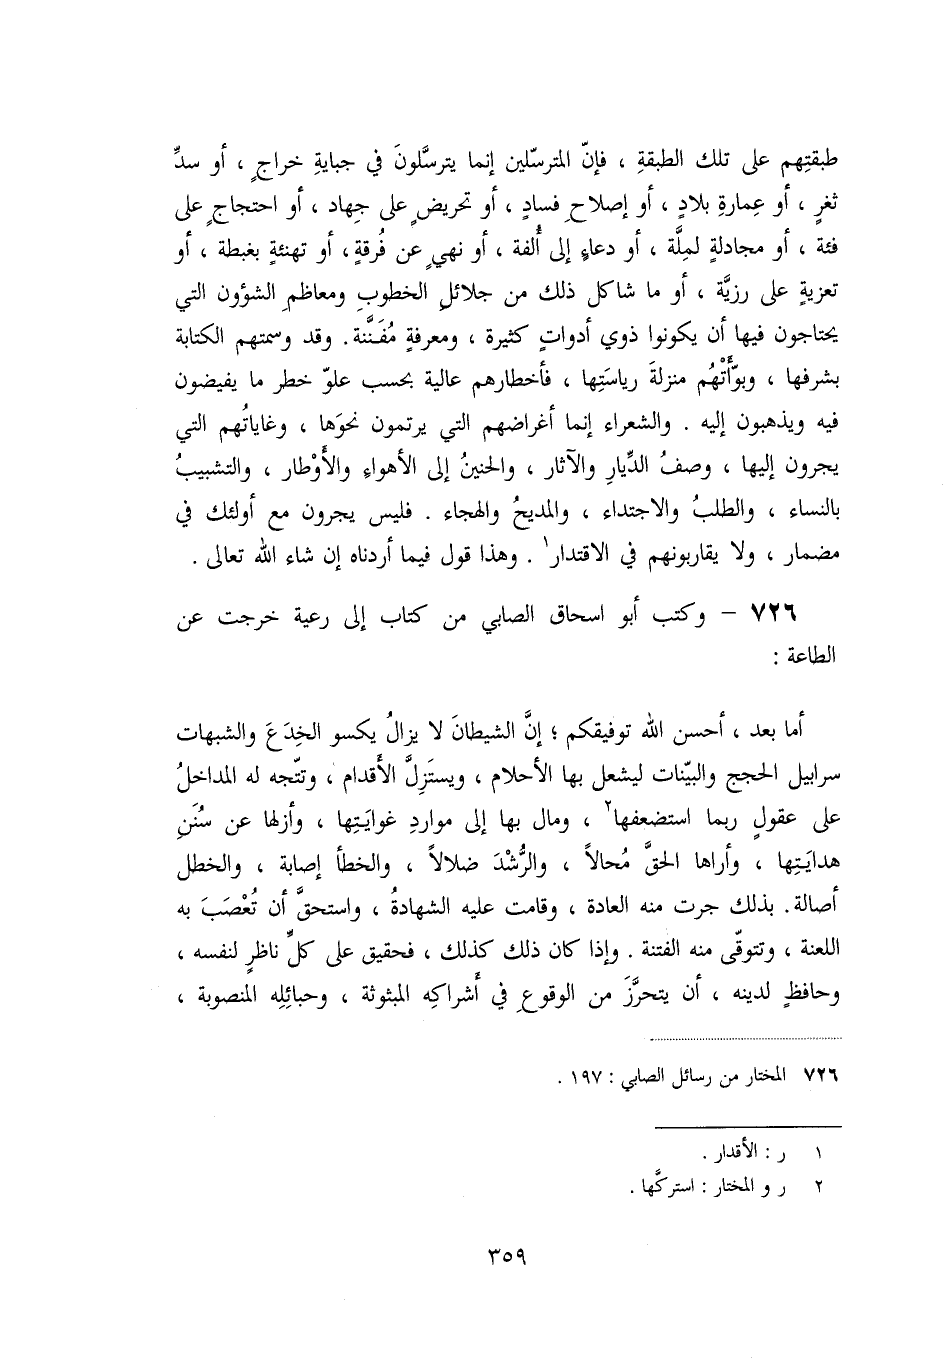 طبقتِهم على تلك الطبقةِ ، فإنّ المترسّلين إنما يترسَّلونَ في جبايةِ خراجٍ ، أو سدِّ
ثغرٍ ، أو عِمارةِ بلادٍ ، أو إصلاحِ فسادٍ ، أو تحريضٍ على جِهاد ، أو احتجاجٍ على
فئة ، أو مجادلةٍ لملَّة ، أو دعاءٍ إلى أُلفة ، أو نهيٍ عن فُرقةٍ، أو تهنئةٍ بغبطة ، أو
تعزيةٍ على رزيَّة ، أو ما شاكل ذلك من جلائلِ الخطوبِ ومعاظمِ الشؤون التي
يحتاجون فيها أن يكونوا ذوي أدواتٍ كثيرة ، ومعرفةٍ مُفَنَّنة. وقد وسمتهم الكتابة
بشرفها ، وبوّأَتْهُم منزلةَ رياستِها ، فأخطارهم عالية بحسب علوّ خطر ما يفيضون
فيه ويذهبون إليه . والشعراء إنما أغراضهم التي يرتمون نحوَها ، وغاياتُهم التي
يجرون إليها ، وصفُ الدِّيارِ والآثار ، والحنينُ إلى الأهواءِ والأَوْطار ، والتشبيبُ
بالنساء ، والطلبُ والاجتداء ، والمديحُ والهجاء . فليس يجرون مع أولئك في
مضمار ، ولا يقاربونهم في الاقتدار١ . وهذا قول فيما أردناه إن شاء الله تعالى .
٧٢٦ – وكتب أبو اسحاق الصابي من كتاب إلى رعية خرجت عن
الطاعة :
أما بعد ، أحسن الله توفيقكم ؛ إنَّ الشيطانَ لا يزالُ يكسو الخِدَعَ والشبهات
سرابيل الحجج والبيّنات ليشعل بها الأحلام ، ويستَزِلَّ الأَقدام ، وتتّجه له المداخلُ
على عقولٍ ربما استضعفها٢ ، ومال بها إلى مواردِ غوايَتِها ، وأزلها عن سُنَنِ
هدايَتِها ، وأراها الحقَّ مُحالاً ، والرُّشْدَ ضلالاً ، والخطأ إصابة ، والخطل
أصالة. بذلك جرت منه العادة ، وقامت عليه الشهادةُ ، واستحقَّ أن تُعْصَبَ به
اللعنة ، وتتوقّى منه الفتنة . وإذا كان ذلك كذلك ، فحقيق على كلِّ ناظرٍ لنفسه ،
وحافظٍ لدينه ، أن يتحرَّزَ من الوقوعِ في أَشراكِه المبثوثة ، وحبائِلِه المنصوبة ،
٧٢٦ المختار من رسائل الصابي : ١٩٧ .
١ ر : الأقدار .
٢ ر و المختار : استركَّها .
٣٥٩